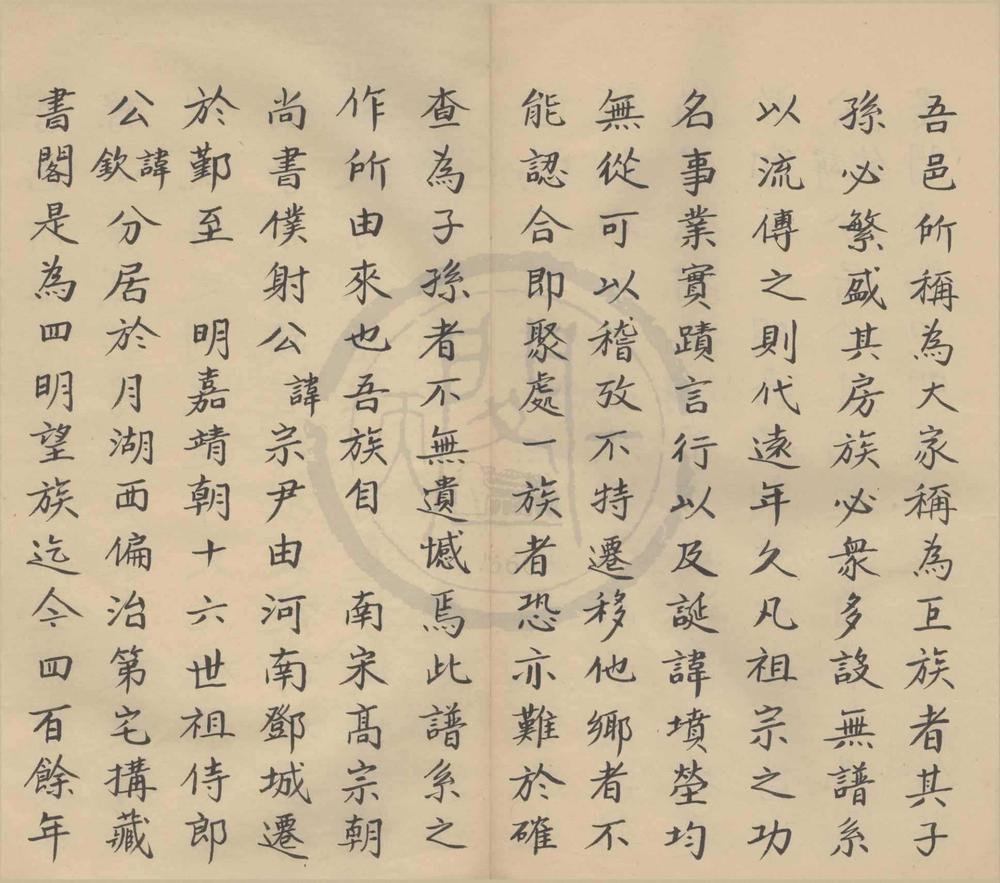 吾邑所稱為大家稱為巨族者其子
孫必繁盛其房族必衆多設無譜系
以流傳之則代遠年久凡祖宗之功
名事業實蹟言行以及誕諱墳塋均
無從可以稽攷不特遷移他鄉者不
能認合即聚處一族者恐亦難於確
查為子孫者不無遺憾焉此譜系之
作所由來也吾族自 南宋高宗朝
尚書僕射公諱宗尹由河南鄧城遷
於鄞至 明嘉靖朝十六世祖侍郎
公諱欽分居於月湖西偏治第宅搆藏
書閣是為四明望族迄今四百餘年